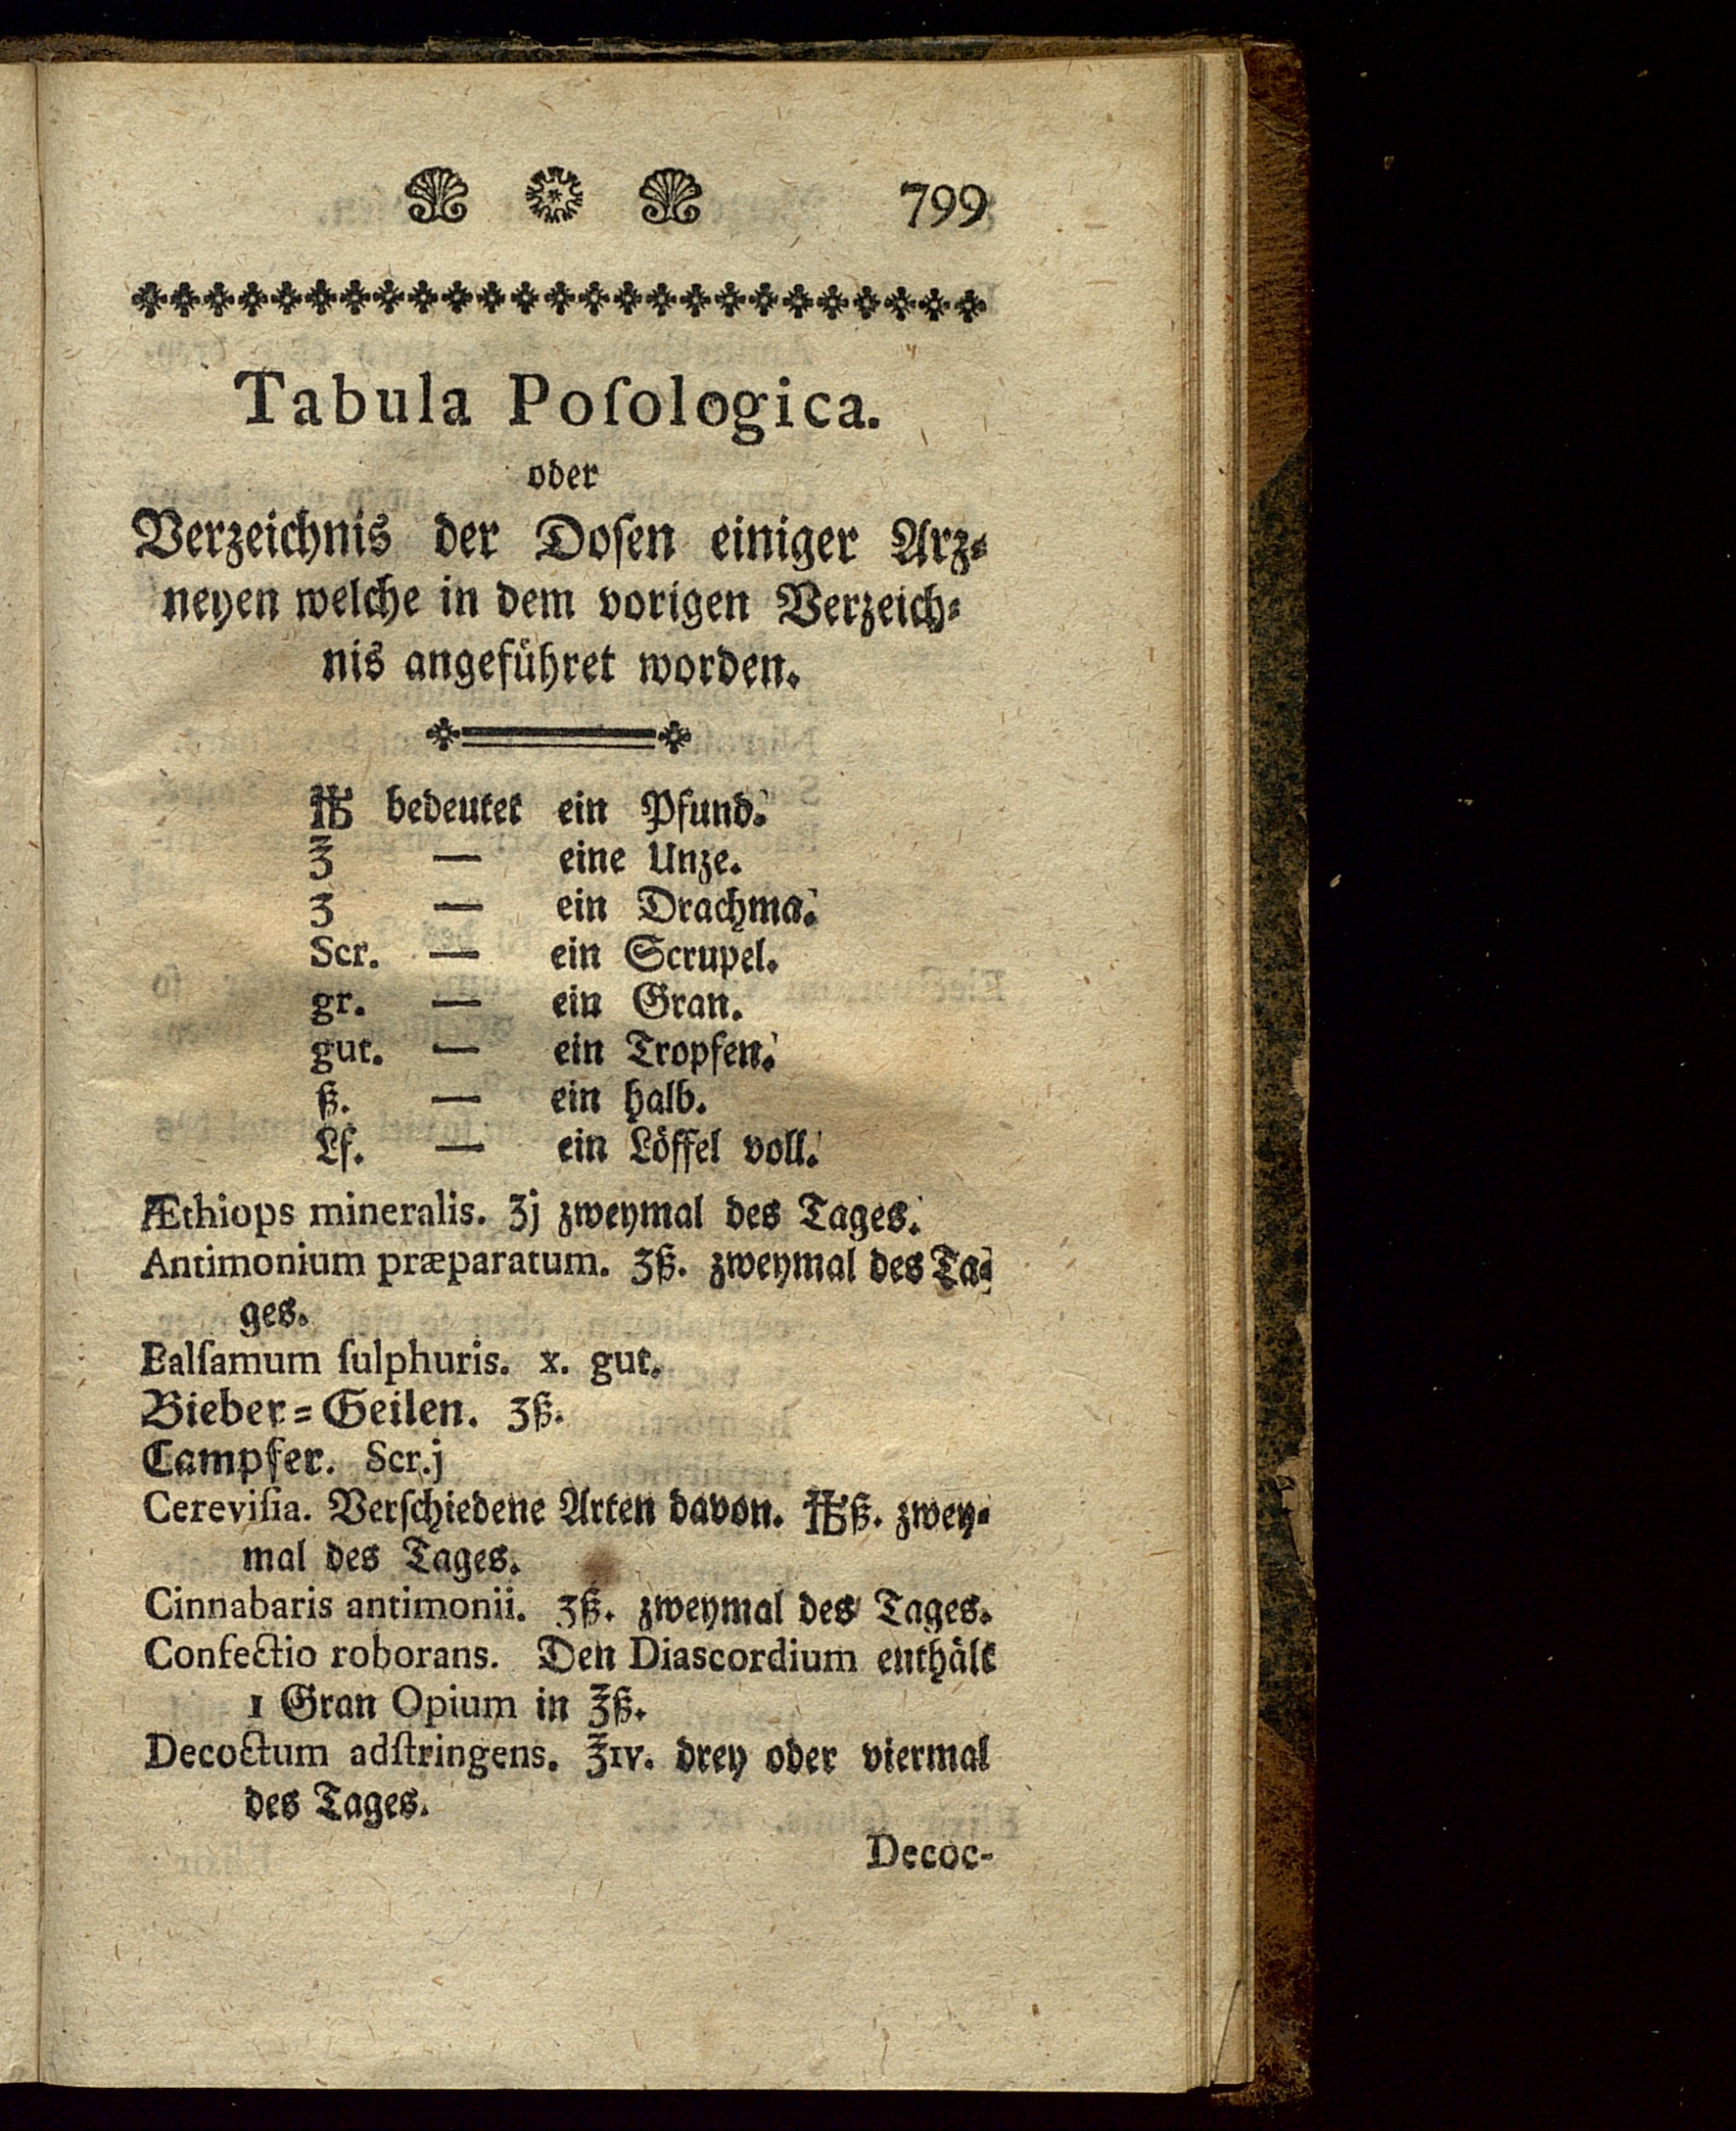 799
Tabula Poſologica.
oder
Verzeichnis der Doſen einiger Arz⸗
neyen welche in dem vorigen Verzeich⸗
nis angeführet worden.
℔ bedeutet ein Pfund.
℥ — eine Unze.
ʒ — ein Drachma.
Scr. — ein Scrupel.
gr. — ein Gran.
gut. — ein Tropfen.
ß. — ein halb.
Lf. — ein Löffel voll.
Æthiops mineralis. ʒj zweymal des Tages.
Antimonium præparatum. ʒß. zweymal des Ta⸗
ges.
Balſamum ſulphuris. x. gut.
Bieber⸗Geilen. ʒß.
Campfer. Scr.j
Cereviſia. Verſchiedene Arten davon. ℔ß. zwey⸗
mal des Tages.
Cinnabaris antimonii. ʒß. zweymal des Tages.
Confectio roborans. Den Diascordium enthält
1 Gran Opium in ℥ß.
Decoctum adſtringens. ℥IV. drey oder viermal
des Tages.
Decoc-